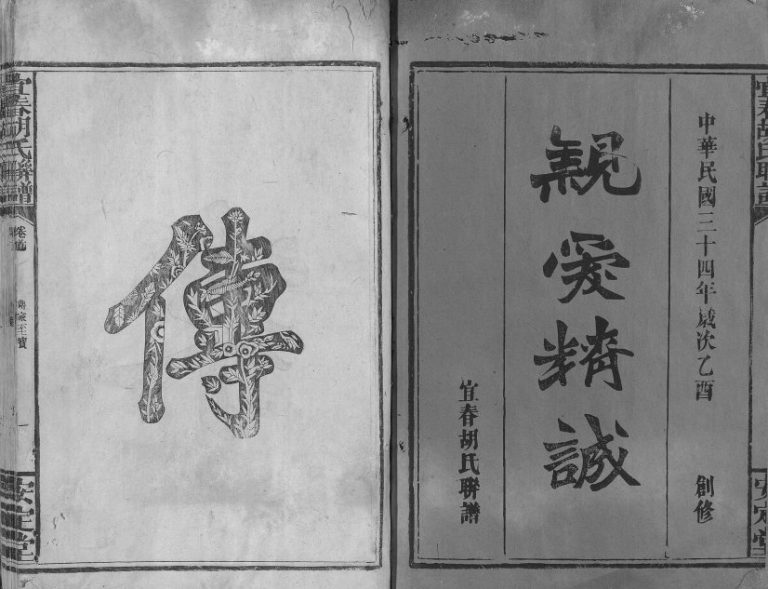 中華民國三十四年歲次乙酉
創修
親愛精誠
宜春胡氏聯譜
宜春胡氏聯譜
安定堂
傳
宜春胡氏聯譜
卷首
傳家至寶
一
安定堂